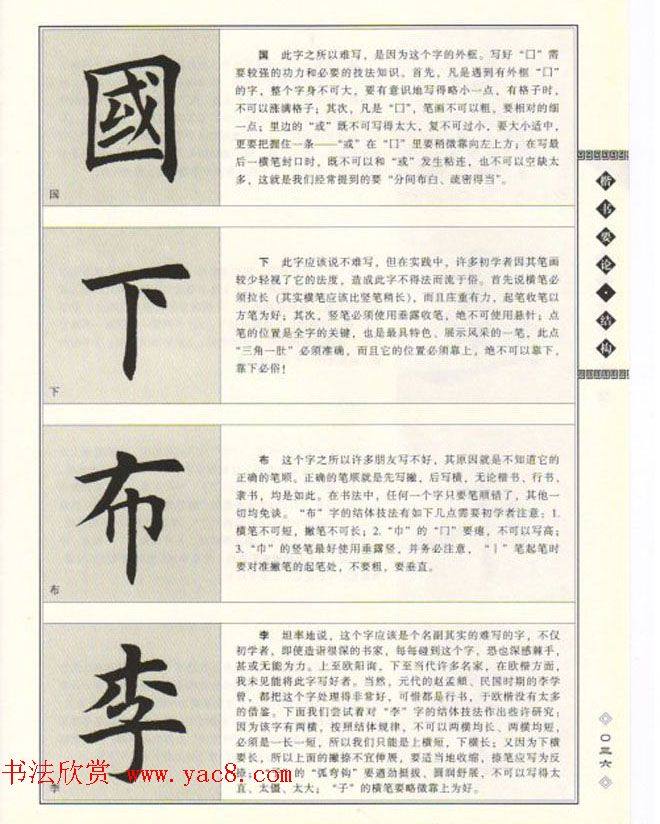 國
国
国 此字之所以难写，是因为这个字的外框。写好“囗”需
要较强的功力和必要的技法知识，首先，凡是遇到有外框“囗”
的字，整个字身不可大，要有意识地写得略小一点，有格子时，
不可以涨满格子；其次，凡是“囗”，笔画不可以粗，要相对的细
一点；里边的“或”既不可写得太大，复不可过小，要大小适中，
更要把握住一条——“或”在“囗”里要稍微靠向左上方；在写最
后一横笔封口时，既不可以和“或”发生粘连，也不可以空缺太
多，这就是我们经常提到的要“分间布白、疏密得当”。
下
下
下 此字应该说不难写，但在实践中，许多初学者因其笔画
较少轻视了它的法度，造成此字不得法而流于俗。首先说横笔必
须拉长（其实横笔应该比竖笔稍长），而且庄重有力，起笔收笔以
方笔为好；其次，竖笔必须使用垂露收笔，绝不可使用悬针；点
笔的位置是全字的关键，也是最具特色、展示风采的一笔，此点
“三角一肚”必须准确，而且它的位置必须靠上，绝不可以靠下，
靠下必俗！
布
布
布 这个字之所以许多朋友写不好，其原因就是不知道它的
正确的笔顺。正确的笔顺就是先写撇，后写横，无论楷书、行书、
隶书，均是如此。在书法中，任何一个字只要笔顺错了，其他一
切均免谈。“布”字的结体技法有如下几点需要初学者注意：1.
横笔不可短，撇笔不可长；2.“巾”的“冂”要瘪，不可以写高；
3.“巾”的竖笔最好使用垂露竖，并务必注意，“丨”笔起笔时
要对准撇笔的起笔处，不要粗，要垂直。
李
李
李 坦率地说，这个字应该是个名副其实的难写的字，不仅
初学者，即使造诣很深的书家，每每碰到这个字，恐也深感棘手，
甚或无能为力。上至欧阳询，下至当代许多名家，在欧楷方面，
我未见能将此字写好者。当然，元代的赵孟頫、民国时期的李学
曾，都把这个字处理得非常好，可惜都是行书，于欧楷没有太多
的借鉴。下面我们尝试着对“李”字的结体技法作出些许研究：
因为该字有两横，按照结体规律，不可以两横均长、两横均短，
必须是一长一短，所以我们只能是上横短，下横长；又因为下横
要长，所以上面的撇捺不宜伸展，要适当地收缩，捺笔应写为反
捺；的“弧弯钩”要遒劲挺拔、圆润舒展，不可以写得太
直、太僵、太大；“子”的横笔要略微靠上为好。
楷书要论·结构
〇三六
书法欣赏 www.yac8.com